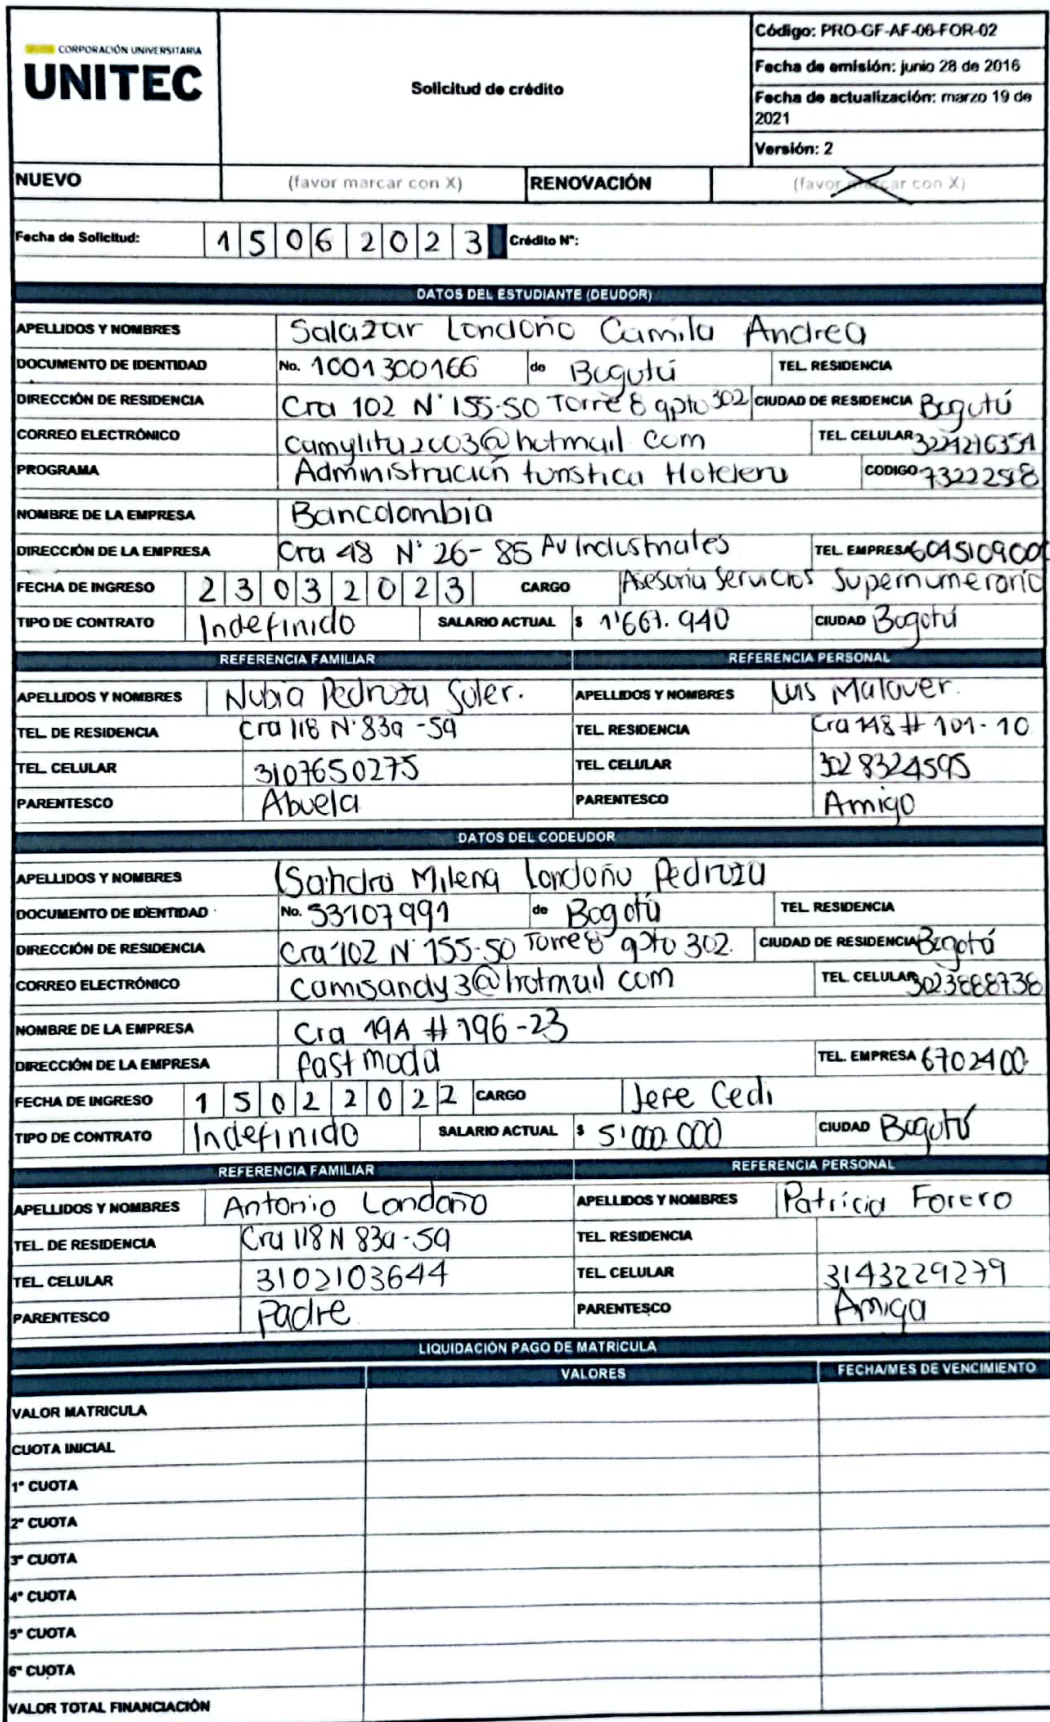 CORPORACIÓN UNIVERSITARIA
UNITEC
Solicitud de crédito
Código: PRO-GF-AF-06-FOR-02
Fecha de emisión: junio 28 de 2016
Fecha de actualización: marzo 19 de 2021
Versión: 2
NUEVO (favor marcar con X) RENOVACIÓN (favor marcar con X)
Fecha de Solicitud: 1 5 0 6 2 0 2 3 Crédito N°:
DATOS DEL ESTUDIANTE (DEUDOR)
APELLIDOS Y NOMBRES Salazar Londoño Camila Andrea
DOCUMENTO DE IDENTIDAD No. 1001300166 de Bogotá TEL. RESIDENCIA
DIRECCIÓN DE RESIDENCIA Cra 102 N° 155-50 Torre 8 apto 302 CIUDAD DE RESIDENCIA Bogotá
CORREO ELECTRÓNICO camylita2003@hotmail com TEL. CELULAR 3224216351
PROGRAMA Administración turistica Hotelera CODIGO
NOMBRE DE LA EMPRESA Bancolombia
DIRECCIÓN DE LA EMPRESA Cra 48 N° 26-85 Av Industriales TEL. EMPRESA 6045109000
FECHA DE INGRESO 2 3 0 3 2 0 2 3 CARGO Asesoria Servicios Supernumerario
TIPO DE CONTRATO Indefinido SALARIO ACTUAL $ 1'661.940 CIUDAD Bogotá
REFERENCIA FAMILIAR REFERENCIA PERSONAL
APELLIDOS Y NOMBRES Nubia Pedroza Soler. APELLIDOS Y NOMBRES Luis Malaver.
TEL. DE RESIDENCIA Cra 118 N° 83a-59 TEL. RESIDENCIA Cra 148 # 101-10
TEL. CELULAR 3107650275 TEL. CELULAR 3028324595
PARENTESCO Abuela PARENTESCO Amigo
DATOS DEL CODEUDOR
APELLIDOS Y NOMBRES Sandra Milena Londoño Pedroza
DOCUMENTO DE IDENTIDAD No. 53107991 de Bogotá TEL. RESIDENCIA
DIRECCIÓN DE RESIDENCIA Cra 102 N° 155-50 Torre 8 apto 302. CIUDAD DE RESIDENCIA Bogotá
CORREO ELECTRÓNICO camisandy3@hotmail com TEL. CELULAR 3023888736
NOMBRE DE LA EMPRESA Cra 19A # 196-23
DIRECCIÓN DE LA EMPRESA fast moda TEL. EMPRESA 6702400
FECHA DE INGRESO 1 5 0 2 2 0 2 2 CARGO Jefe Cedi
TIPO DE CONTRATO Indefinido SALARIO ACTUAL $ 5'000.000 CIUDAD Bogotá
REFERENCIA FAMILIAR REFERENCIA PERSONAL
APELLIDOS Y NOMBRES Antonio Londoño APELLIDOS Y NOMBRES Patricia Forero
TEL. DE RESIDENCIA Cra 118 N 83a-59 TEL. RESIDENCIA
TEL. CELULAR 3102103644 TEL. CELULAR 3143229279
PARENTESCO Padre PARENTESCO Amiga
LIQUIDACIÓN PAGO DE MATRÍCULA
VALORES FECHA/MES DE VENCIMIENTO
VALOR MATRICULA
CUOTA INICIAL
1° CUOTA
2° CUOTA
3° CUOTA
4° CUOTA
5° CUOTA
6° CUOTA
VALOR TOTAL FINANCIACIÓN